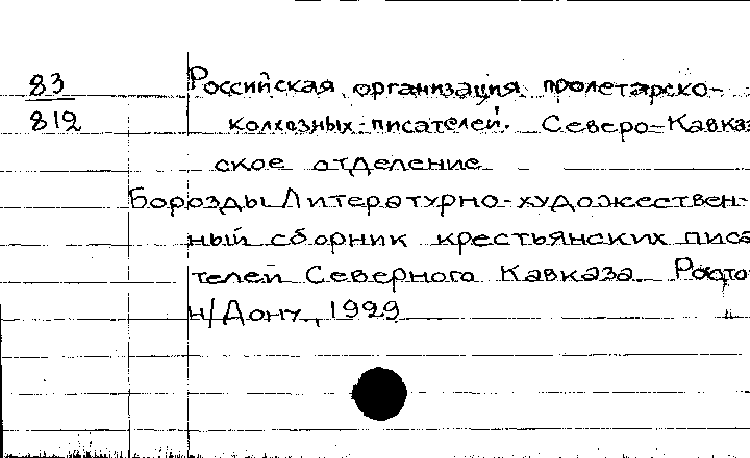 83
812
Российская организация пролетарско-
колхозных писателей. Северо-Кавказ
ское отделение
Борозды Литературно-художествен-
ный сборник крестьянских писа
телей Северного Кавказа. Ростов
н/Дону, 1929